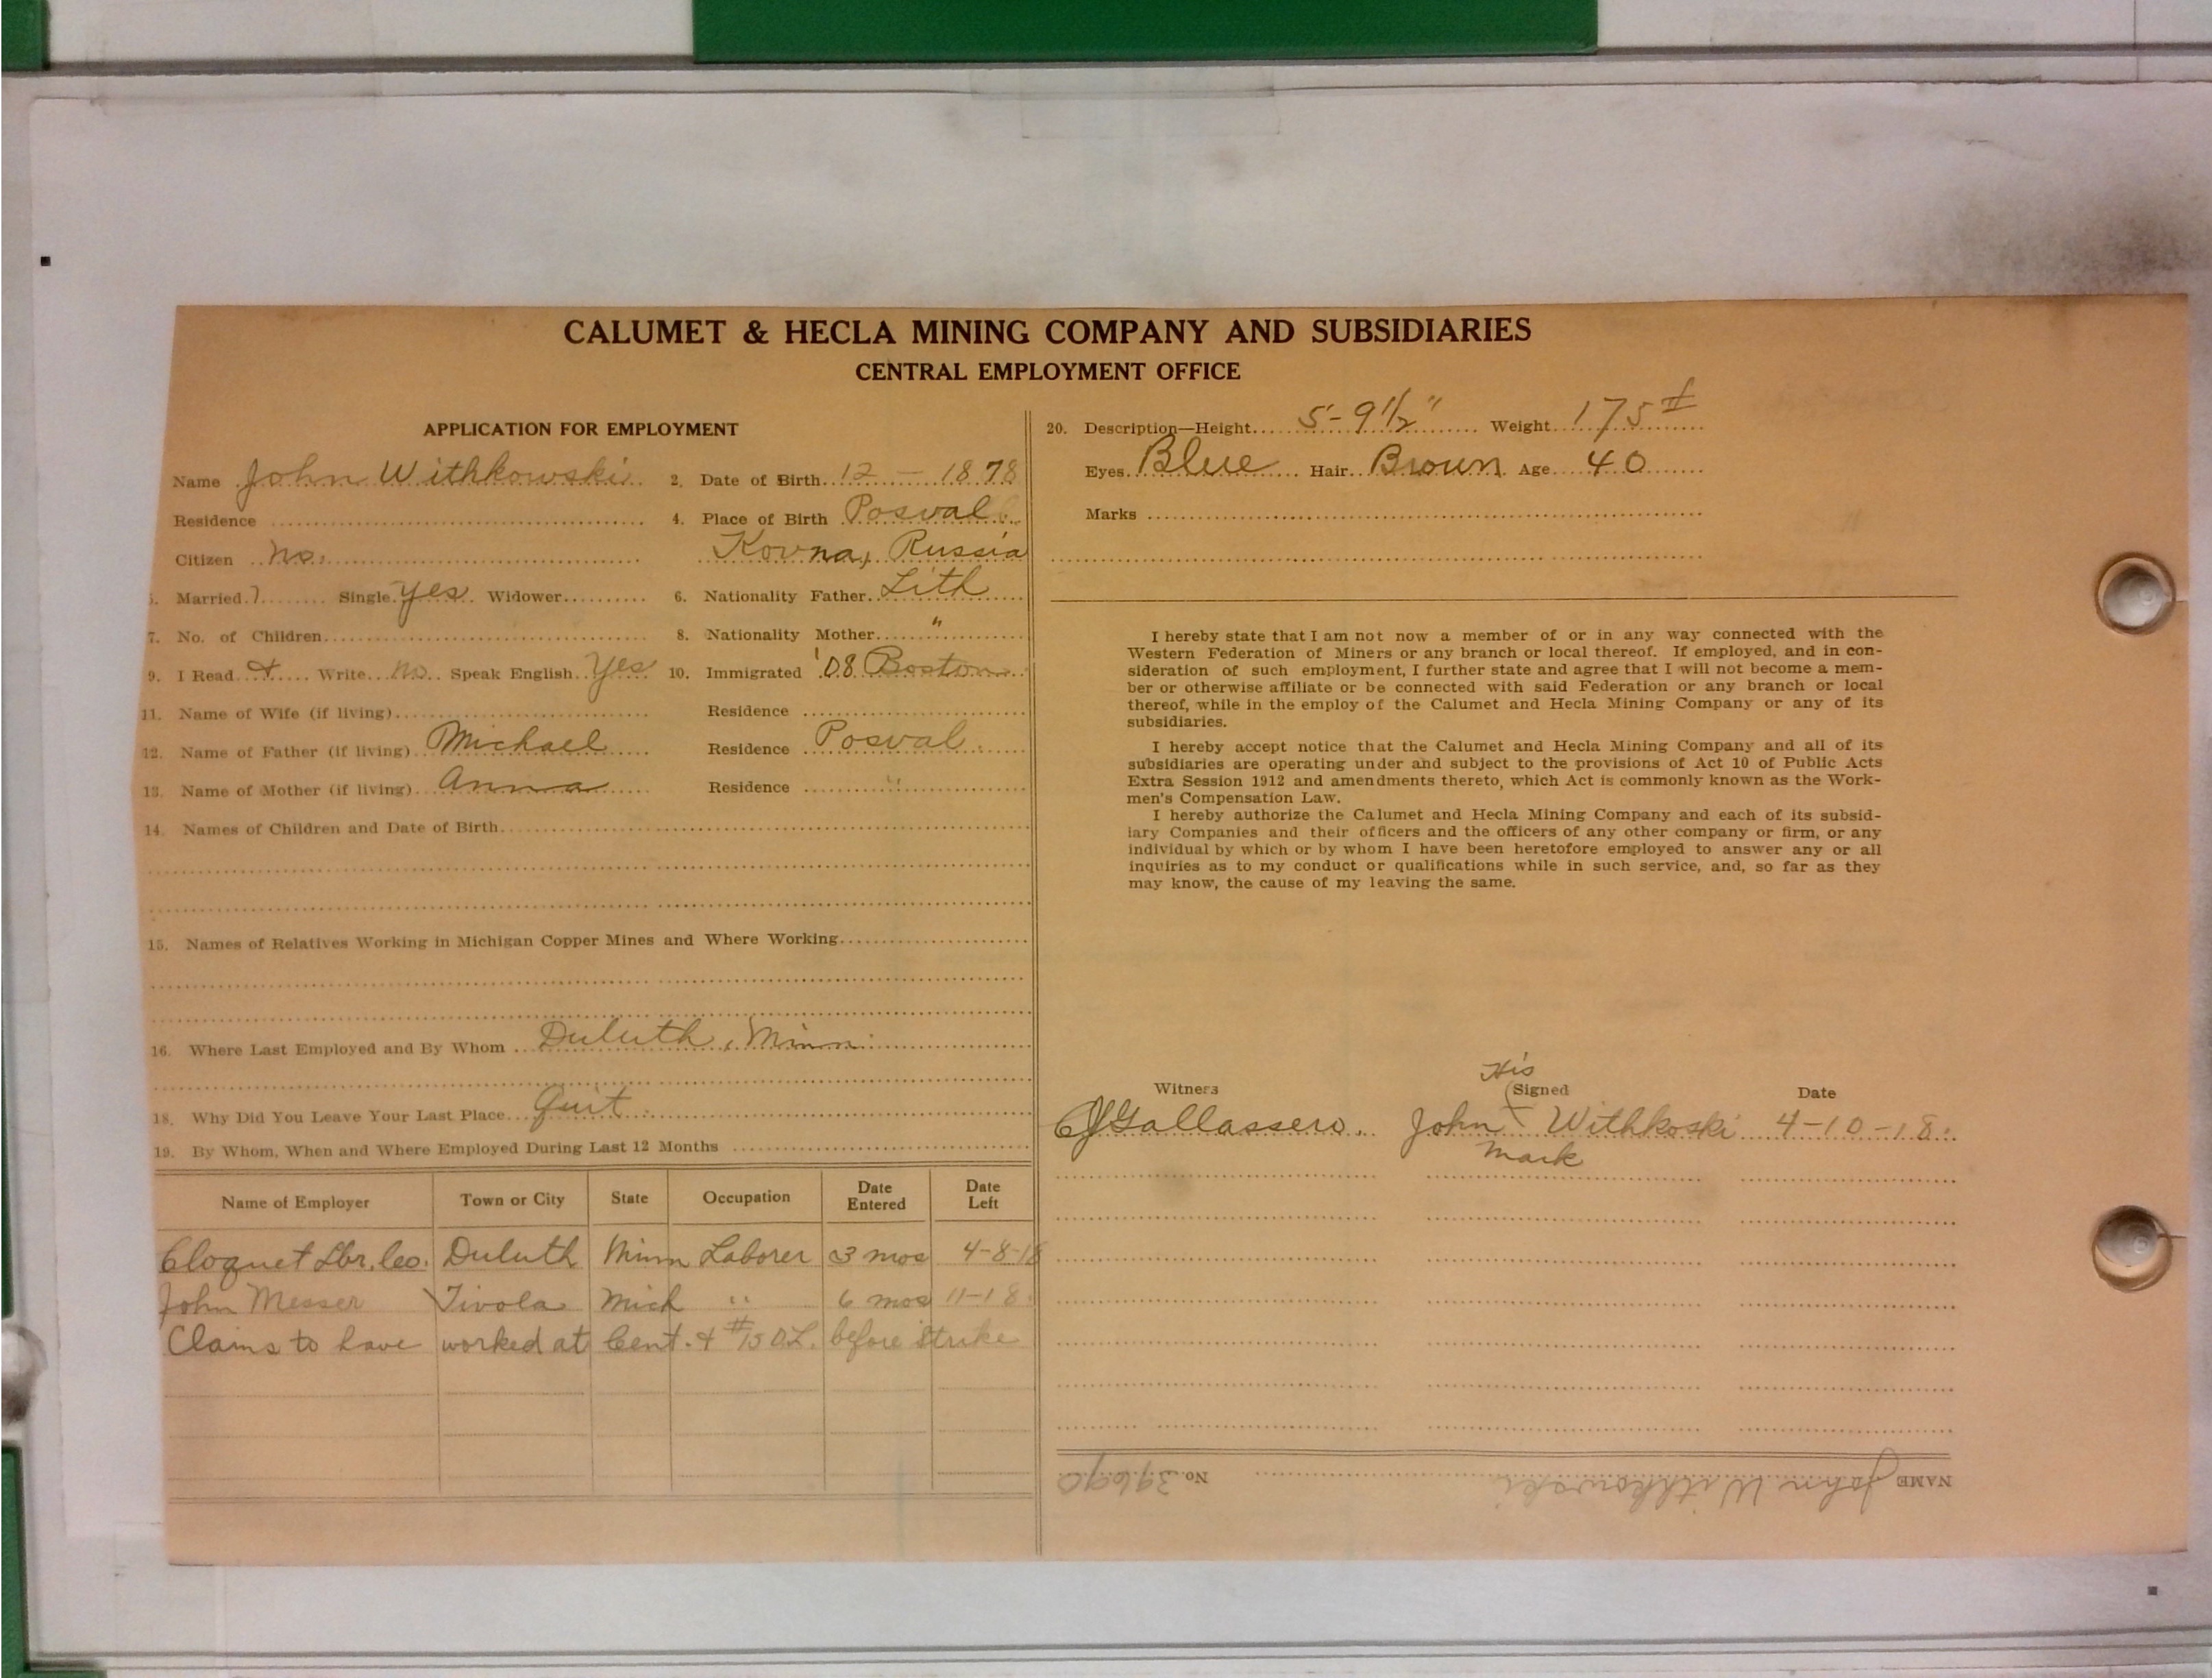 CALUMET & HECLA MINING COMPANY AND SUBSIDIARIES
CENTRAL EMPLOYMENT OFFICE
APPLICATION FOR EMPLOYMENT
Name John Withkowski 2. Date of Birth 12 — 1878
Residence 4. Place of Birth Posval
Citizen no. Kovna, Russia
5. Married Single yes Widower 6. Nationality Father Lith
7. No. of Children 8. Nationality Mother "
9. I Read & Write no Speak English Yes 10. Immigrated '08 Boston
11. Name of Wife (if living) Residence
12. Name of Father (if living) Michael Residence Posval
13. Name of Mother (if living) Anna Residence "
14. Names of Children and Date of Birth
15. Names of Relatives Working in Michigan Copper Mines and Where Working
16. Where Last Employed and By Whom Duluth, Minn
18. Why Did You Leave Your Last Place Quit
19. By Whom, When and Where Employed During Last 12 Months
Name of Employer Town or City State Occupation Date Entered Date Left
Cloquet Lbr. Co. Duluth Minn Laborer 3 mos 4-8-18
John Messer Tivola Mich " 6 mos 11-18
Claims to have worked at Cent. & #15 O.L. before strike
20. Description—Height 5'-9½" Weight 175#
Eyes Blue Hair Brown Age 40
Marks
I hereby state that I am not now a member of or in any way connected with the
Western Federation of Miners or any branch or local thereof. If employed, and in con-
sideration of such employment, I further state and agree that I will not become a mem-
ber or otherwise affiliate or be connected with said Federation or any branch or local
thereof, while in the employ of the Calumet and Hecla Mining Company or any of its
subsidiaries.
I hereby accept notice that the Calumet and Hecla Mining Company and all of its
subsidiaries are operating under and subject to the provisions of Act 10 of Public Acts
Extra Session 1912 and amendments thereto, which Act is commonly known as the Work-
men's Compensation Law.
I hereby authorize the Calumet and Hecla Mining Company and each of its subsid-
iary Companies and their officers and the officers of any other company or firm, or any
individual by which or by whom I have been heretofore employed to answer any or all
inquiries as to my conduct or qualifications while in such service, and, so far as they
may know, the cause of my leaving the same.
His
Witness (Signed Date
John X Withkoski 4-10-18.
Mark
NAME John Withkowski No. 39690